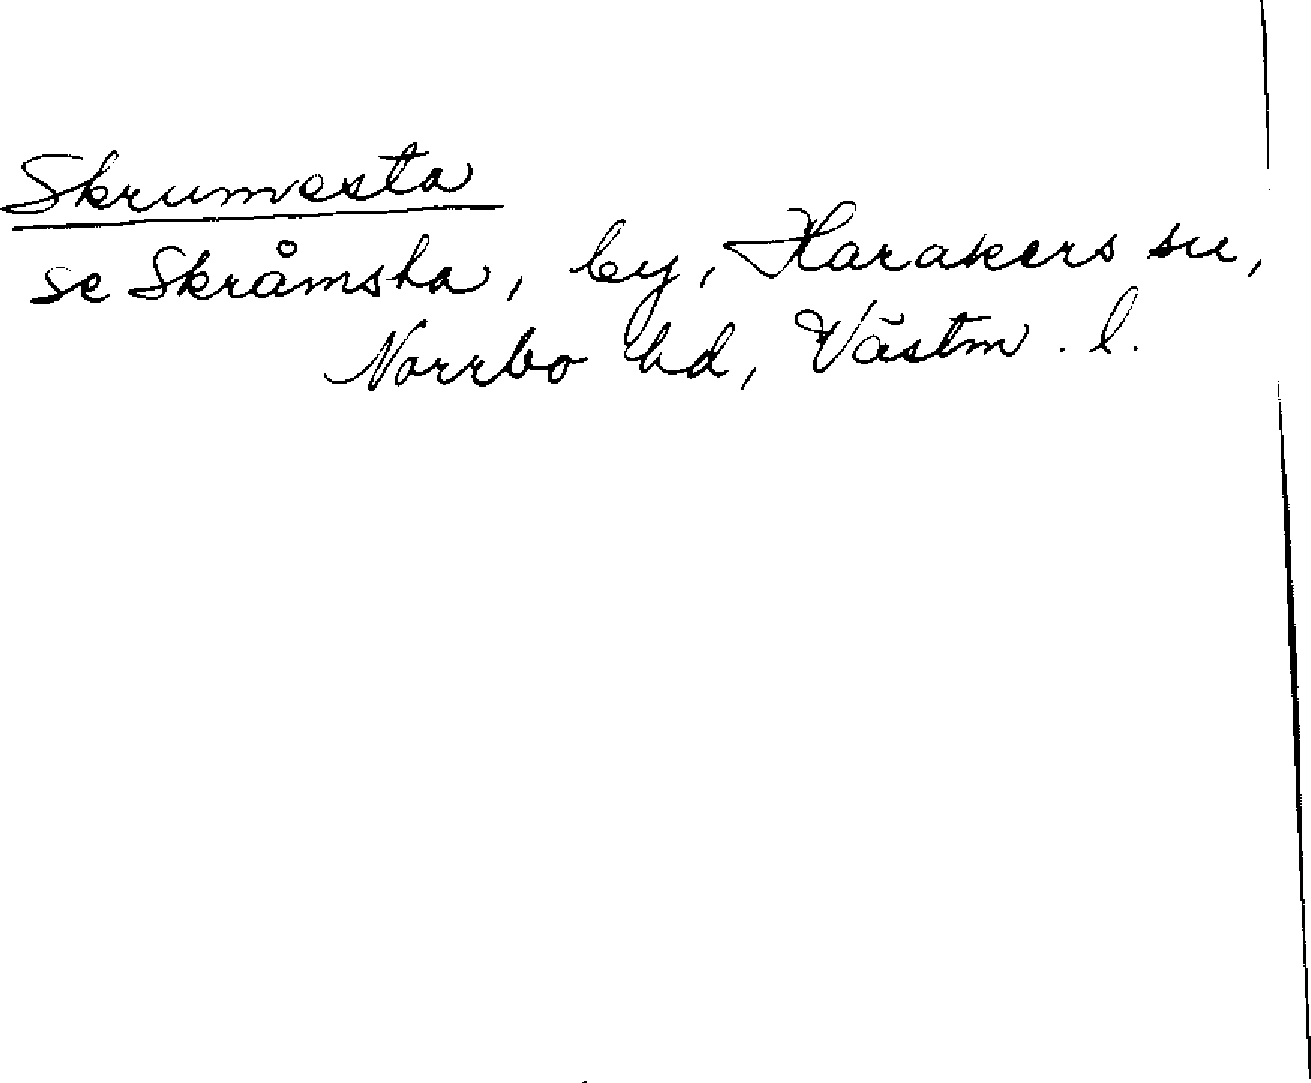 Skrumesta
se Skråmsta, by, Harakers sn,
Norrbo hd, Västm. l.